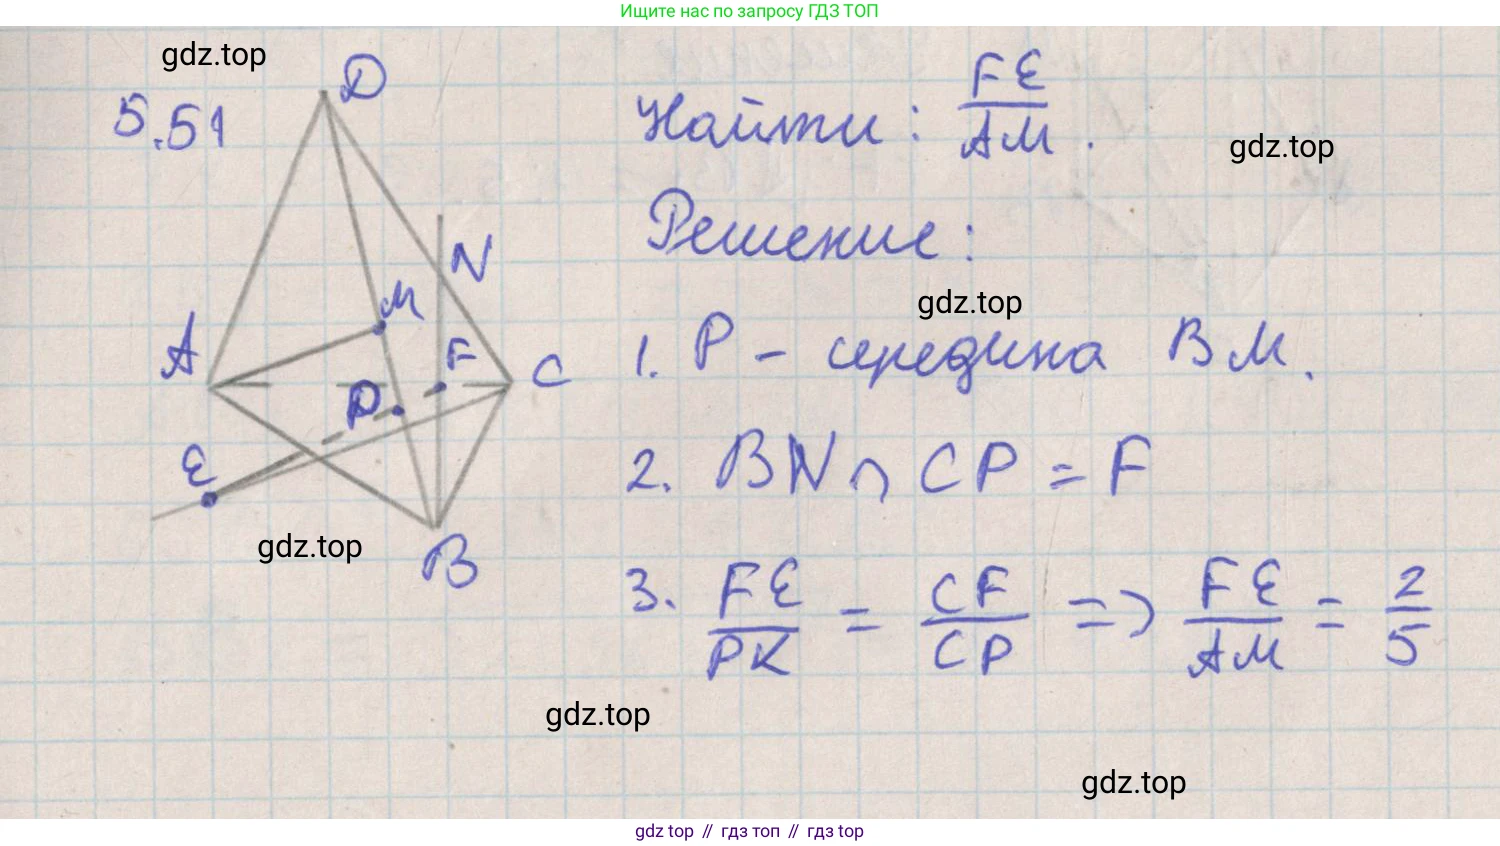 Ищите нас по запросу ГДЗ ТОП
gdz.top
5.51
D
Найти: FE/AM.
gdz.top
Решение:
N
gdz.top
M
A
F
C
P
1. P – середина BM.
E
2. BN ∩ CP = F
gdz.top
B
3. FE/PK = CF/CP => FE/AM = 2/5
gdz.top
gdz.top
gdz top // гдз топ // гдз top